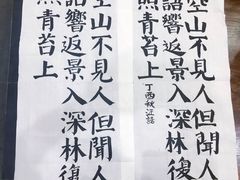 空山不見人但聞人
語響返景入深林復
照青苔上
丁酉秋江誌
空山不見人但聞人
語響返景入深林復
照青苔上